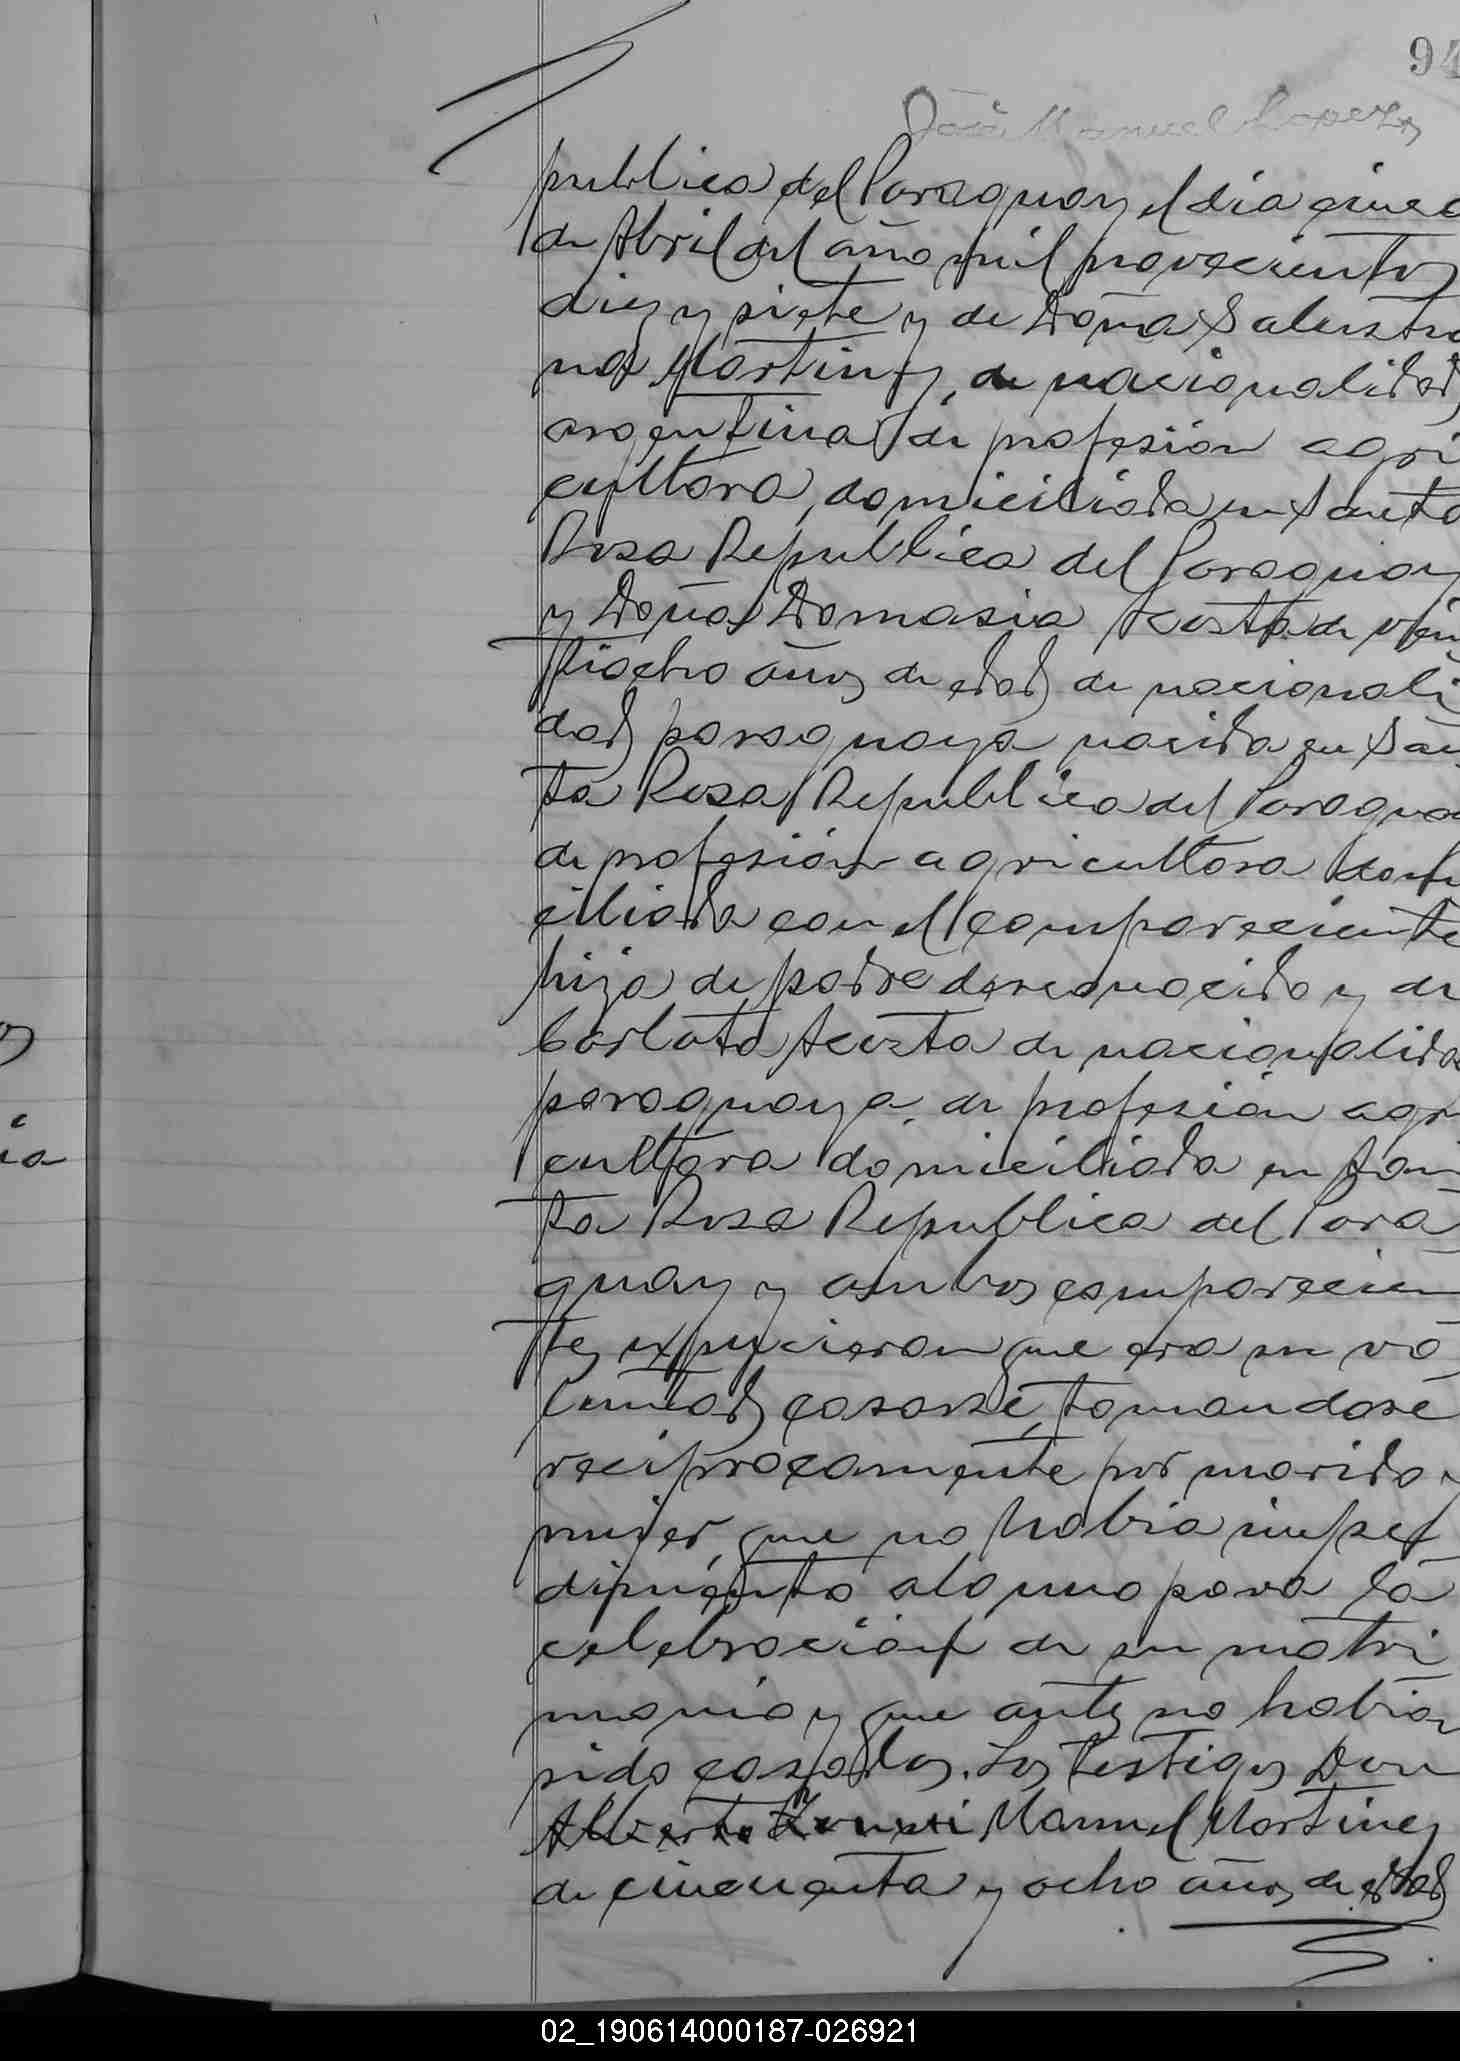 94
José Manuel Lopez
publica del Paraguay el dia cinco
de Abril del año mil novecientos
diez y siete y de Doña Salustia
na Martinez, de nacionalidad
argentina de profesión agri
cultora, domiciliada en Santa
Rosa Republica del Paraguay
y Doña Domasia Acosta de vein
tiocho años de edad de nacionali
dad paraguaya nacida en San
ta Rosa Republica del Paragua
de profesión agricultora domi
ciliada con el compareciente
hija de padre desconocido y de
Carlota Acosta de nacionalida
paraguaya de profesión agri
cultora domiciliada en San
ta Rosa Republica del Para
guay y ambos comparecien
tes expucieron que era su vo
luntad casarsé, tomandosé
reciprocamente por marido y
mujer, que no habia impe
dimento alguno para la
celebración de su matri
monio y que antes no habian
sido casados. Los testigos Don
Alberto Manuel Martinez
de cincuenta y ocho años de edad
ia
02_190614000187-026921